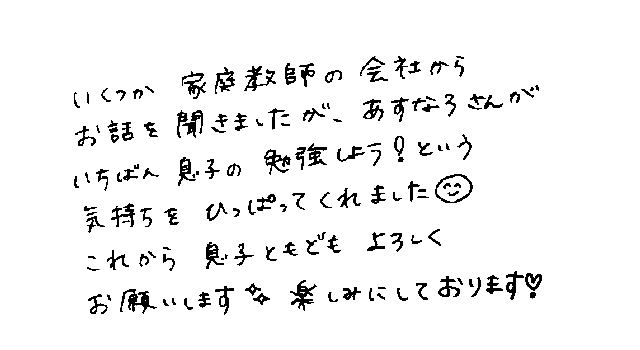 いくつか 家庭教師の会社から
お話を聞きましたが、あすなろさんが
いちばん 息子の 勉強しよう!という
気持ちを ひっぱってくれました😊
これから 息子ともども よろしく
お願いします✨ 楽しみにしております♡